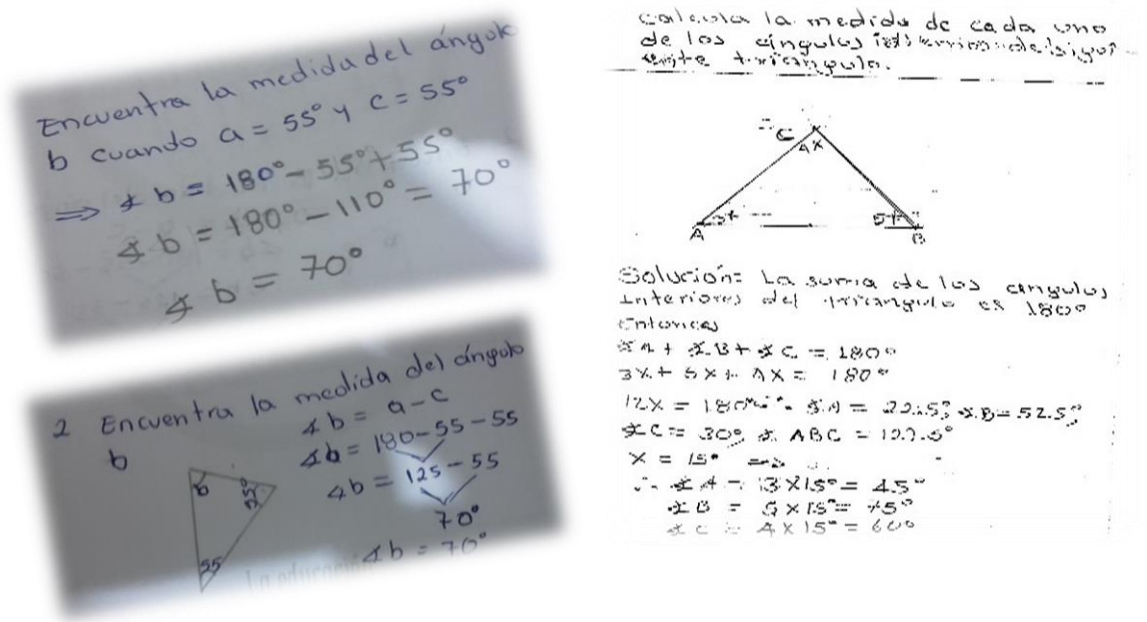 Encuentra la medida del ángulo
b cuando a = 55° y c = 55°
⇒ ∡ b = 180° - 55° + 55°
∡ b = 180° - 110° = 70°
∡ b = 70°
2 Encuentra la medida del ángulo
b
∡ b = a - c
∡b = 180 - 55 - 55
∡b = 125 - 55
70°
∡b = 70°
b
55°
55
La educación
Calcula la medida de cada uno
de los ángulos
triangulo.
C
4x
3x
A
B
Solución: La suma de los angulos
Interiores del triangulo es 180°
Entonces
∡A + ∡B + ∡C = 180°
3X + 5X + 4X = 180°
12X = 180° ∡A = 22.5°, ∡B = 52.5°,
∡C = 30°, ∡ ABC = 127.5°
X = 15° ⇒
∴ ∡A = 3X15° = 45°
∡B = 5X15° = 75°
∡C = 4X15° = 60°